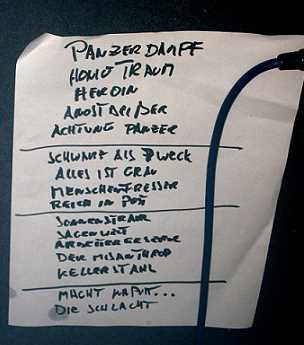 PANZERDAMPF
HOMO TRAUM
HEROIN
ANGSTBEIßER
ACHTUNG PANZER
SCHWARZ ALS ZWECK
ALLES IST GRAU
MENSCHENFRESSER
REICH IN ROT
SONNENSTRAHL
SAGEN WIR
ARBEITERRESERVE
DER MISANTHROP
KELLERSTAHL
MACHT KAPUTT...
DIE SCHLACHT